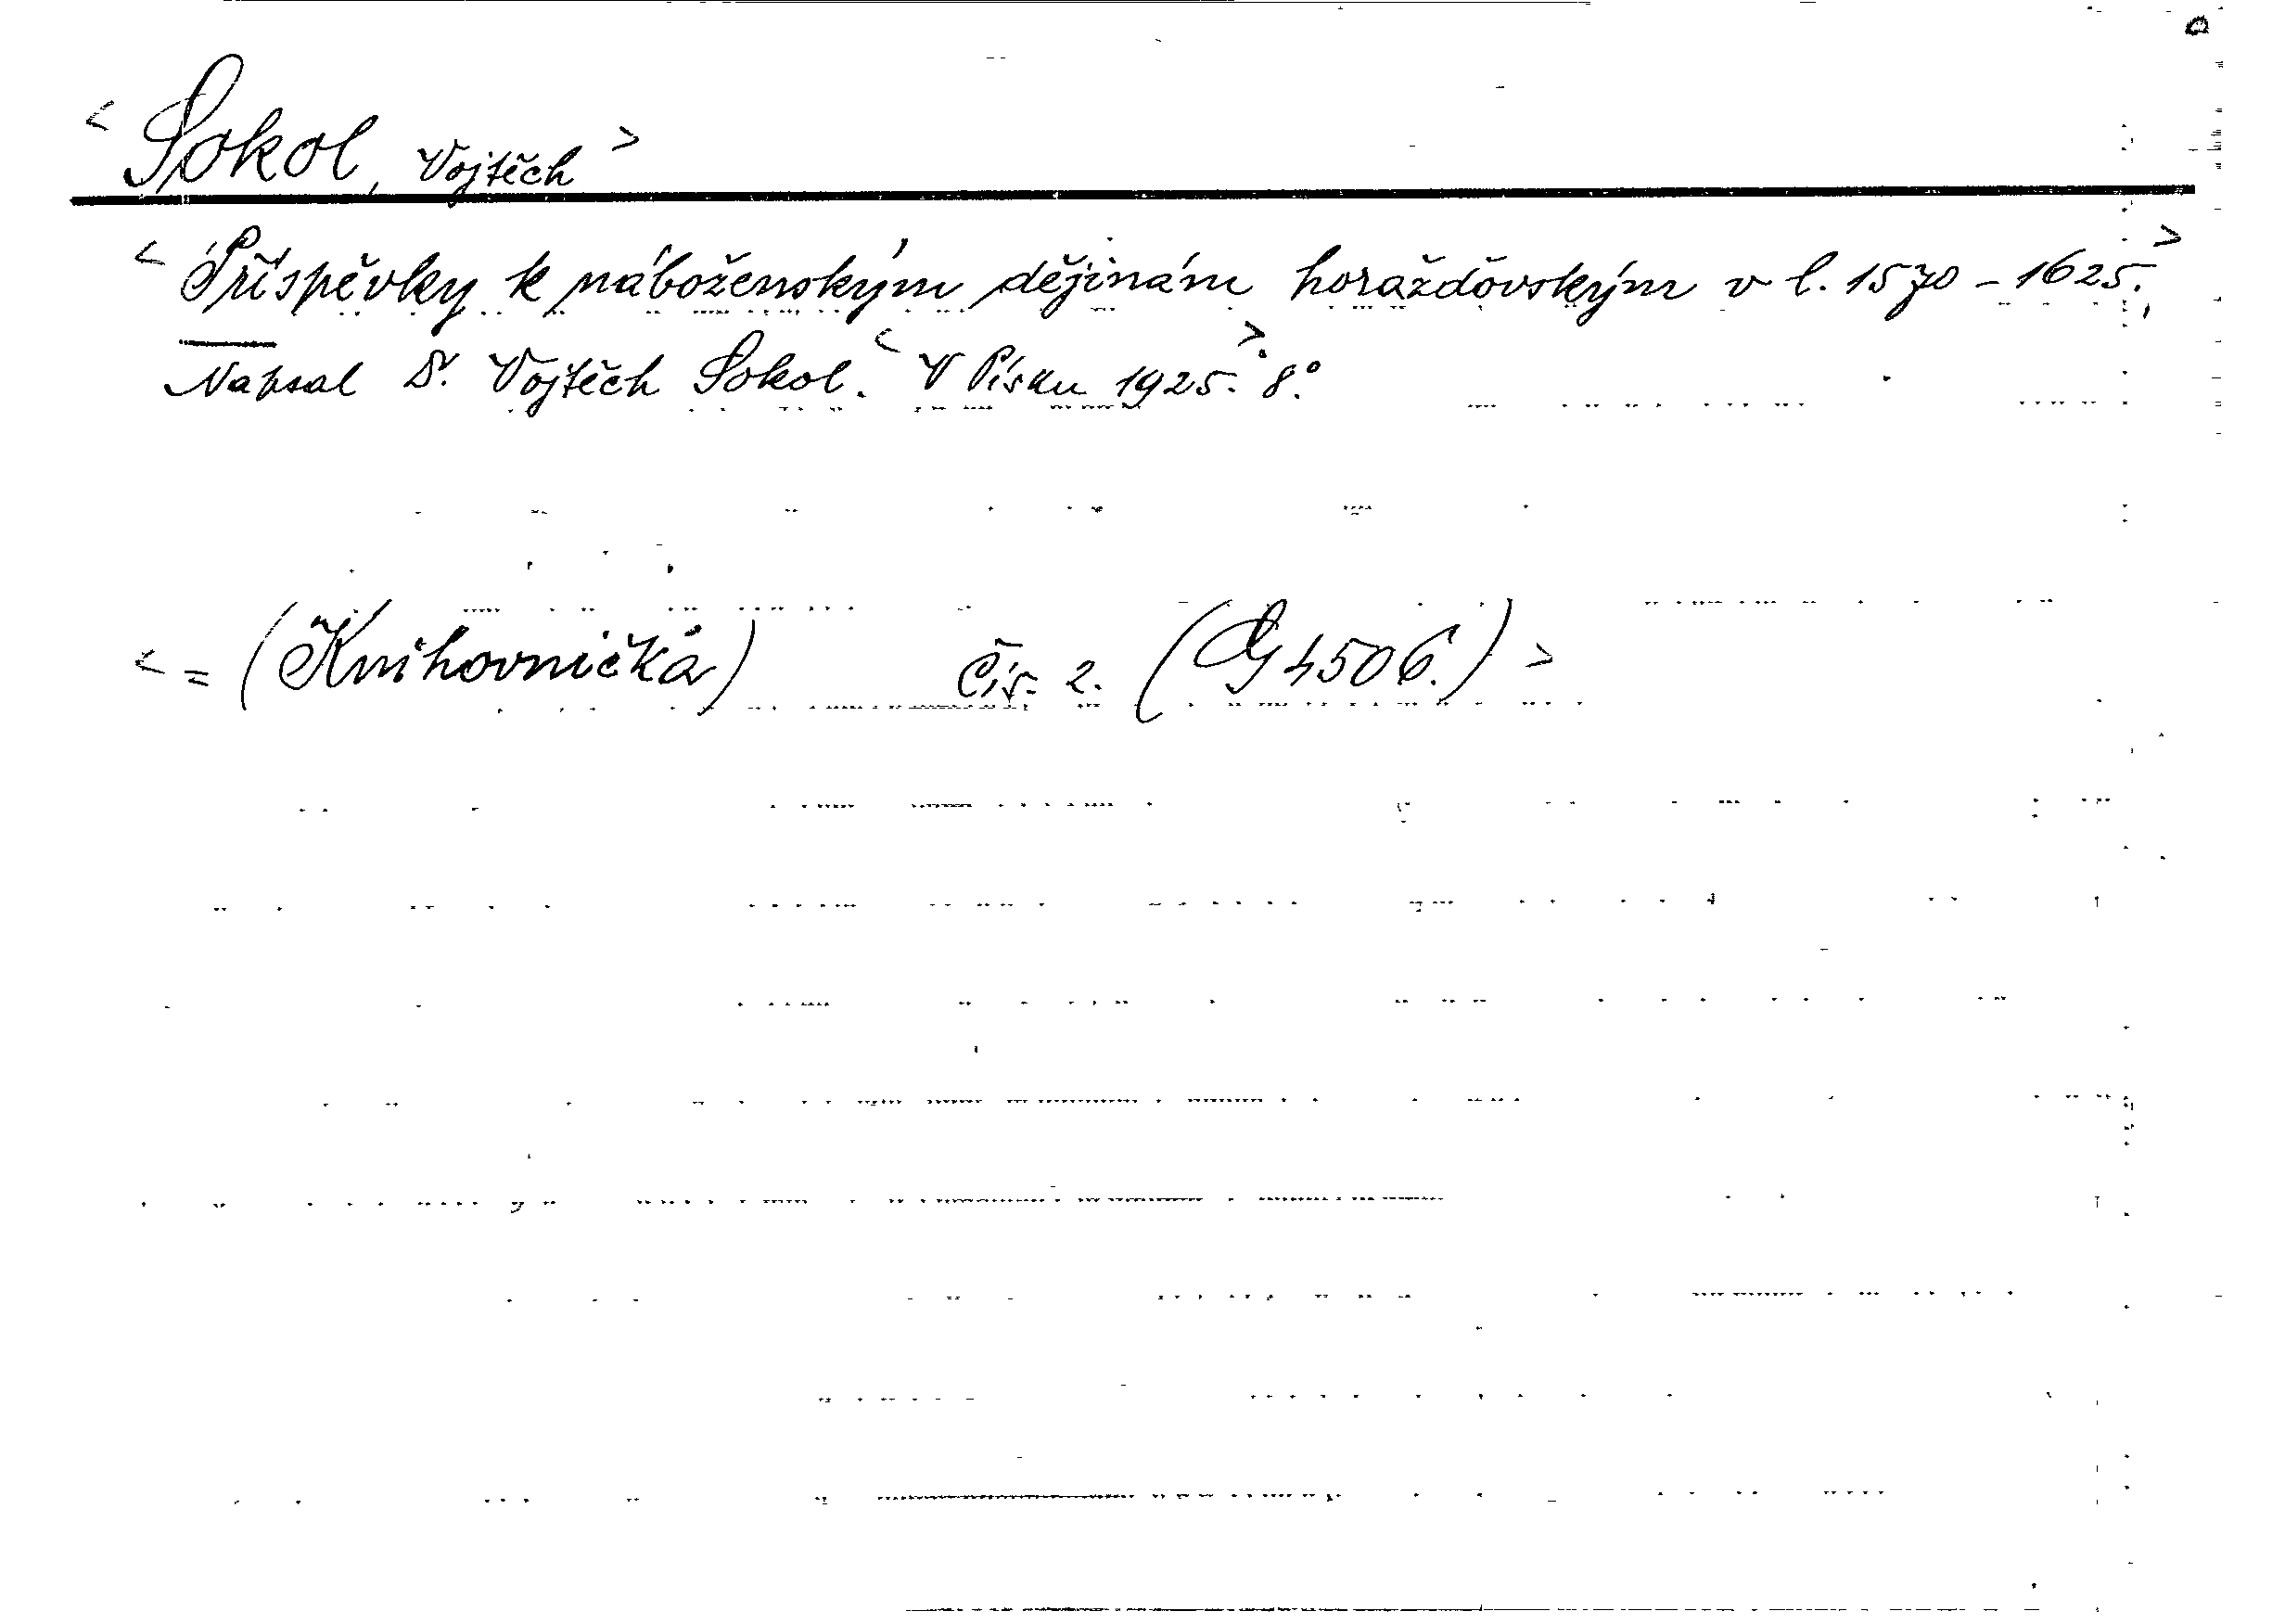 < Sokol, Vojtěch >
< Příspěvky k náboženským dějinám horažďovským v l. 1570 - 1625. >
Napsal Dr. Vojtěch Sokol. < V Písku 1925. >. 8°.
< = (Knihovnička) Čís. 2. (G 4506.) >